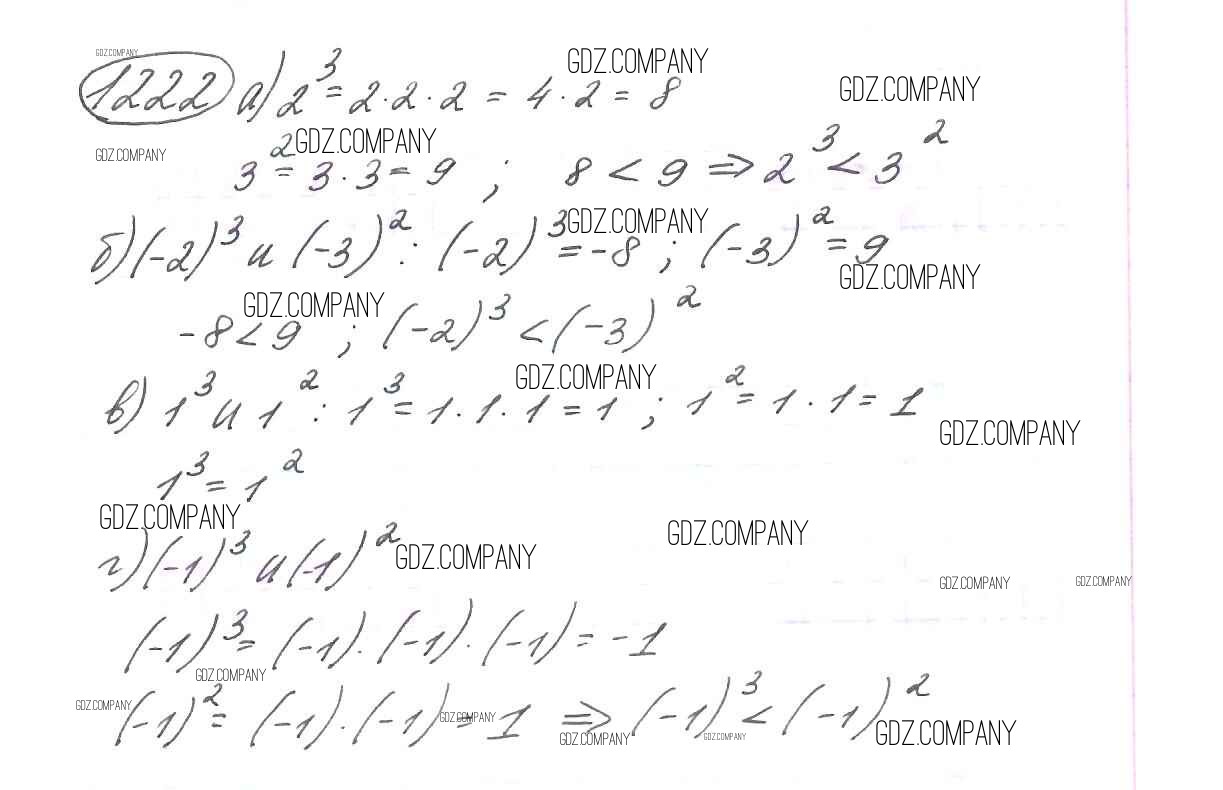 GDZ.COMPANY
GDZ.COMPANY
GDZ.COMPANY
1222 а) 2³ = 2·2·2 = 4·2 = 8
GDZ.COMPANY
GDZ.COMPANY
3² = 3·3 = 9 ; 8 < 9 ⇒ 2³ < 3²
GDZ.COMPANY
б) (-2)³ и (-3)² : (-2)³ = -8 ; (-3)² = 9
GDZ.COMPANY
GDZ.COMPANY
-8 < 9 ; (-2)³ < (-3)²
GDZ.COMPANY
в) 1³ и 1² : 1³ = 1·1·1 = 1 ; 1² = 1·1 = 1
GDZ.COMPANY
1³ = 1²
GDZ.COMPANY
GDZ.COMPANY
г) (-1)³ и (-1)²
GDZ.COMPANY
GDZ.COMPANY
GDZ.COMPANY
(-1)³ = (-1)·(-1)·(-1) = -1
GDZ.COMPANY
GDZ.COMPANY
(-1)² = (-1)·(-1) = 1 ⇒ (-1)³ < (-1)²
GDZ.COMPANY
GDZ.COMPANY
GDZ.COMPANY
GDZ.COMPANY